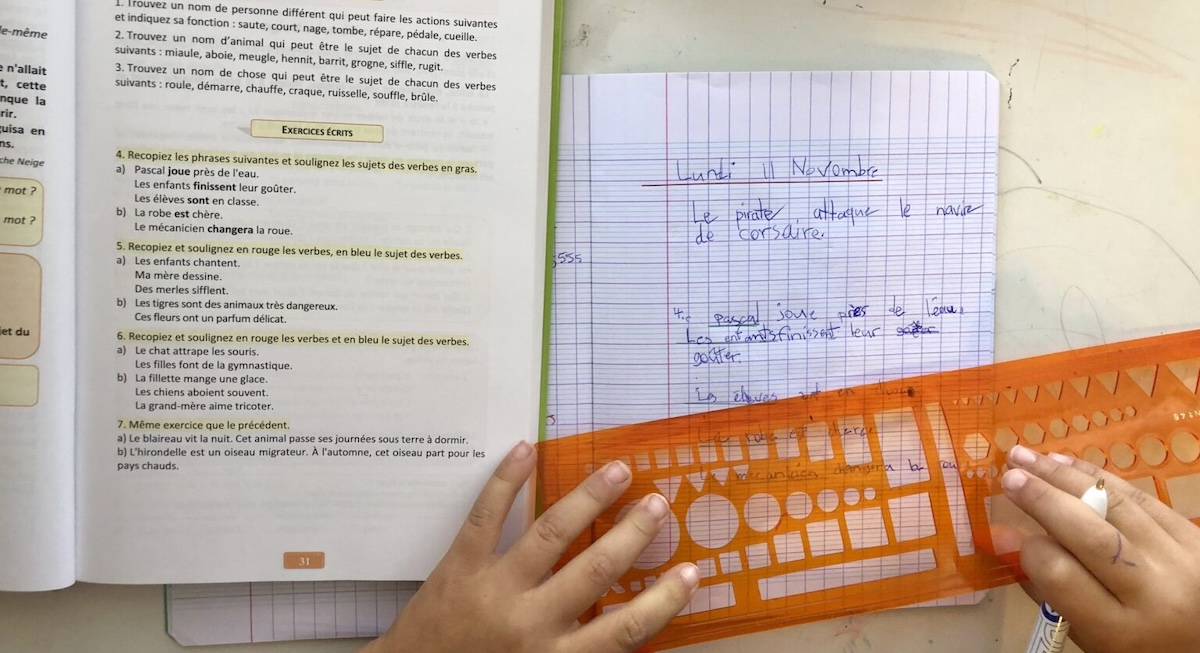 le-même
e n'allait
t, cette
nque la
rir.
uisa en
ns.
che Neige
mot ?
mot ?
jet du
1. Trouvez un nom de personne différent qui peut faire les actions suivantes
et indiquez sa fonction : saute, court, nage, tombe, répare, pédale, cueille.
2. Trouvez un nom d'animal qui peut être le sujet de chacun des verbes
suivants : miaule, aboie, meugle, hennit, barrit, grogne, siffle, rugit.
3. Trouvez un nom de chose qui peut être le sujet de chacun des verbes
suivants : roule, démarre, chauffe, craque, ruisselle, souffle, brûle.
EXERCICES ÉCRITS
4. Recopiez les phrases suivantes et soulignez les sujets des verbes en gras.
a) Pascal joue près de l'eau.
Les enfants finissent leur goûter.
Les élèves sont en classe.
b) La robe est chère.
Le mécanicien changera la roue.
5. Recopiez et soulignez en rouge les verbes, en bleu le sujet des verbes.
a) Les enfants chantent.
Ma mère dessine.
Des merles sifflent.
b) Les tigres sont des animaux très dangereux.
Ces fleurs ont un parfum délicat.
6. Recopiez et soulignez en rouge les verbes et en bleu le sujet des verbes.
a) Le chat attrape les souris.
Les filles font de la gymnastique.
b) La fillette mange une glace.
Les chiens aboient souvent.
La grand-mère aime tricoter.
7. Même exercice que le précédent.
a) Le blaireau vit la nuit. Cet animal passe ses journées sous terre à dormir.
b) L'hirondelle est un oiseau migrateur. À l'automne, cet oiseau part pour les
pays chauds.
31
555
Lundi 11 Novembre
Le pirate attaque le navire
de corsaire.
4. Pascal joue près de l'eau.
Les enfants finissent leur
goûter.
en
est
changera la